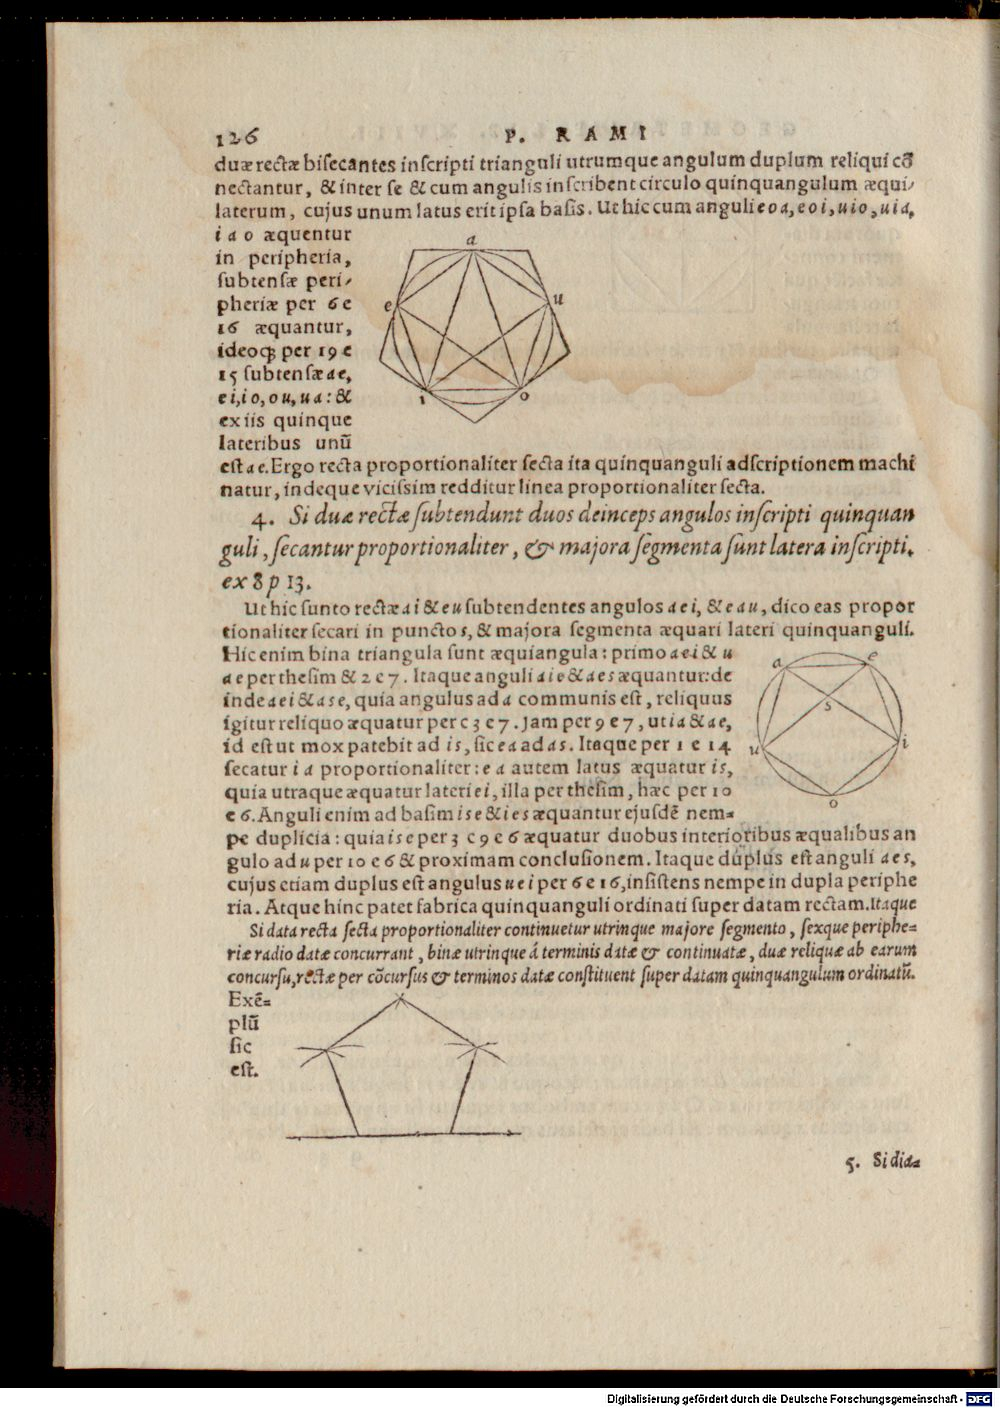 126 P. RAMI
duæ rectæ bisecantes inscripti trianguli utrumque angulum duplum reliqui cō
nectantur, & inter se & cum angulis inscribent circulo quinquangulum æqui-
laterum, cujus unum latus erit ipsa basis. Ut hic cum anguli eoa, eoi, uio, uia,
iao æquentur
in peripheria,
subtensæ peri-
pheriæ per 6 e
16 æquantur,
ideoq; per 19 e
15 subtensæ ae,
ei, io, ou, ua: &
ex iis quinque
lateribus unū
est ae. Ergo recta proportionaliter secta ita quinquanguli adscriptionem machi
natur, indeque vicissim redditur linea proportionaliter secta.
a
e
u
i
o
4. Si duæ rectæ subtendunt duos deinceps angulos inscripti quinquan
guli, secantur proportionaliter, & majora segmenta sunt latera inscripti.
ex 8 p 13.
Ut hic sunto rectæ ai & eu subtendentes angulos aei, & eau, dico eas propor
tionaliter secari in puncto s, & majora segmenta æquari lateri quinquanguli.
Hic enim bina triangula sunt æquiangula: primo aei & u
ae per thesim & 2 e 7. Itaque anguli aie & aes æquantur: de
inde aei & ase, quia angulus ad a communis est, reliquus
igitur reliquo æquatur per c 3 e 7. Jam per 9 e 7, ut ia & ae,
id est ut mox patebit ad is, sic ea ad as. Itaque per 1 e 14
secatur ia proportionaliter: ea autem latus æquatur is,
quia utraque æquatur lateri ei, illa per thesim, hæc per 10
e 6. Anguli enim ad basim ise & ies æquantur ejusdē nem=
pe duplicia: quia ise per 3 c 9 e 6 æquatur duobus interioribus æqualibus an
gulo ad u per 10 e 6 & proximam conclusionem. Itaque duplus est anguli aes,
cujus etiam duplus est angulus uei per 6 e 16, insistens nempe in dupla periphe
ria. Atque hinc patet fabrica quinquanguli ordinati super datam rectam. Itaque
a
e
s
u
i
o
Si data recta secta proportionaliter continuetur utrinque majore segmento, sexque periphe=
riæ radio datæ concurrant, binæ utrinque á terminis datæ & continuatæ, duæ reliquæ ab earum
concursu, rectæ per cōcursus & terminos datæ constituent super datam quinquangulum ordinatū.
Exē=
plū
sic
est.
5. Si dia=
Digitalisierung gefördert durch die Deutsche Forschungsgemeinschaft - DFG